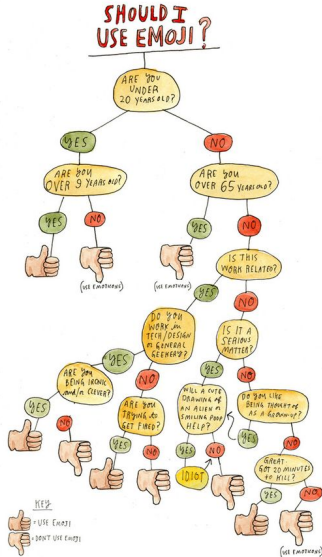 SHOULD I
USE EMOJI?
ARE YOU
UNDER
20 YEARS OLD?
YES
NO
ARE YOU
OVER 9 YEARS OLD?
ARE YOU
OVER 65 YEARS OLD?
YES
NO
YES
NO
(USE EMOTICONS)
(USE EMOTICONS)
IS THIS
WORK RELATED?
YES
NO
DO YOU
WORK in
TECH/DESIGN
or GENERAL
GEEKERY?
IS IT A
SERIOUS
MATTER?
YES
NO
YES
NO
ARE YOU
BEING IRONIC
and/or CLEVER?
ARE YOU
TRYING to
GET FIRED?
WILL A CUTE
DRAWING OF
AN ALIEN or
SMILING POOP
HELP?
DO YOU LIKE
BEING THOUGHT of
AS A GROWN-UP?
YES
NO
YES
NO
YES
NO
YES
NO
IDIOT
GREAT.
GOT 20 MINUTES
to KILL?
YES
NO
(USE EMOTICONS)
KEY
= USE EMOJI
= DON'T USE EMOJI